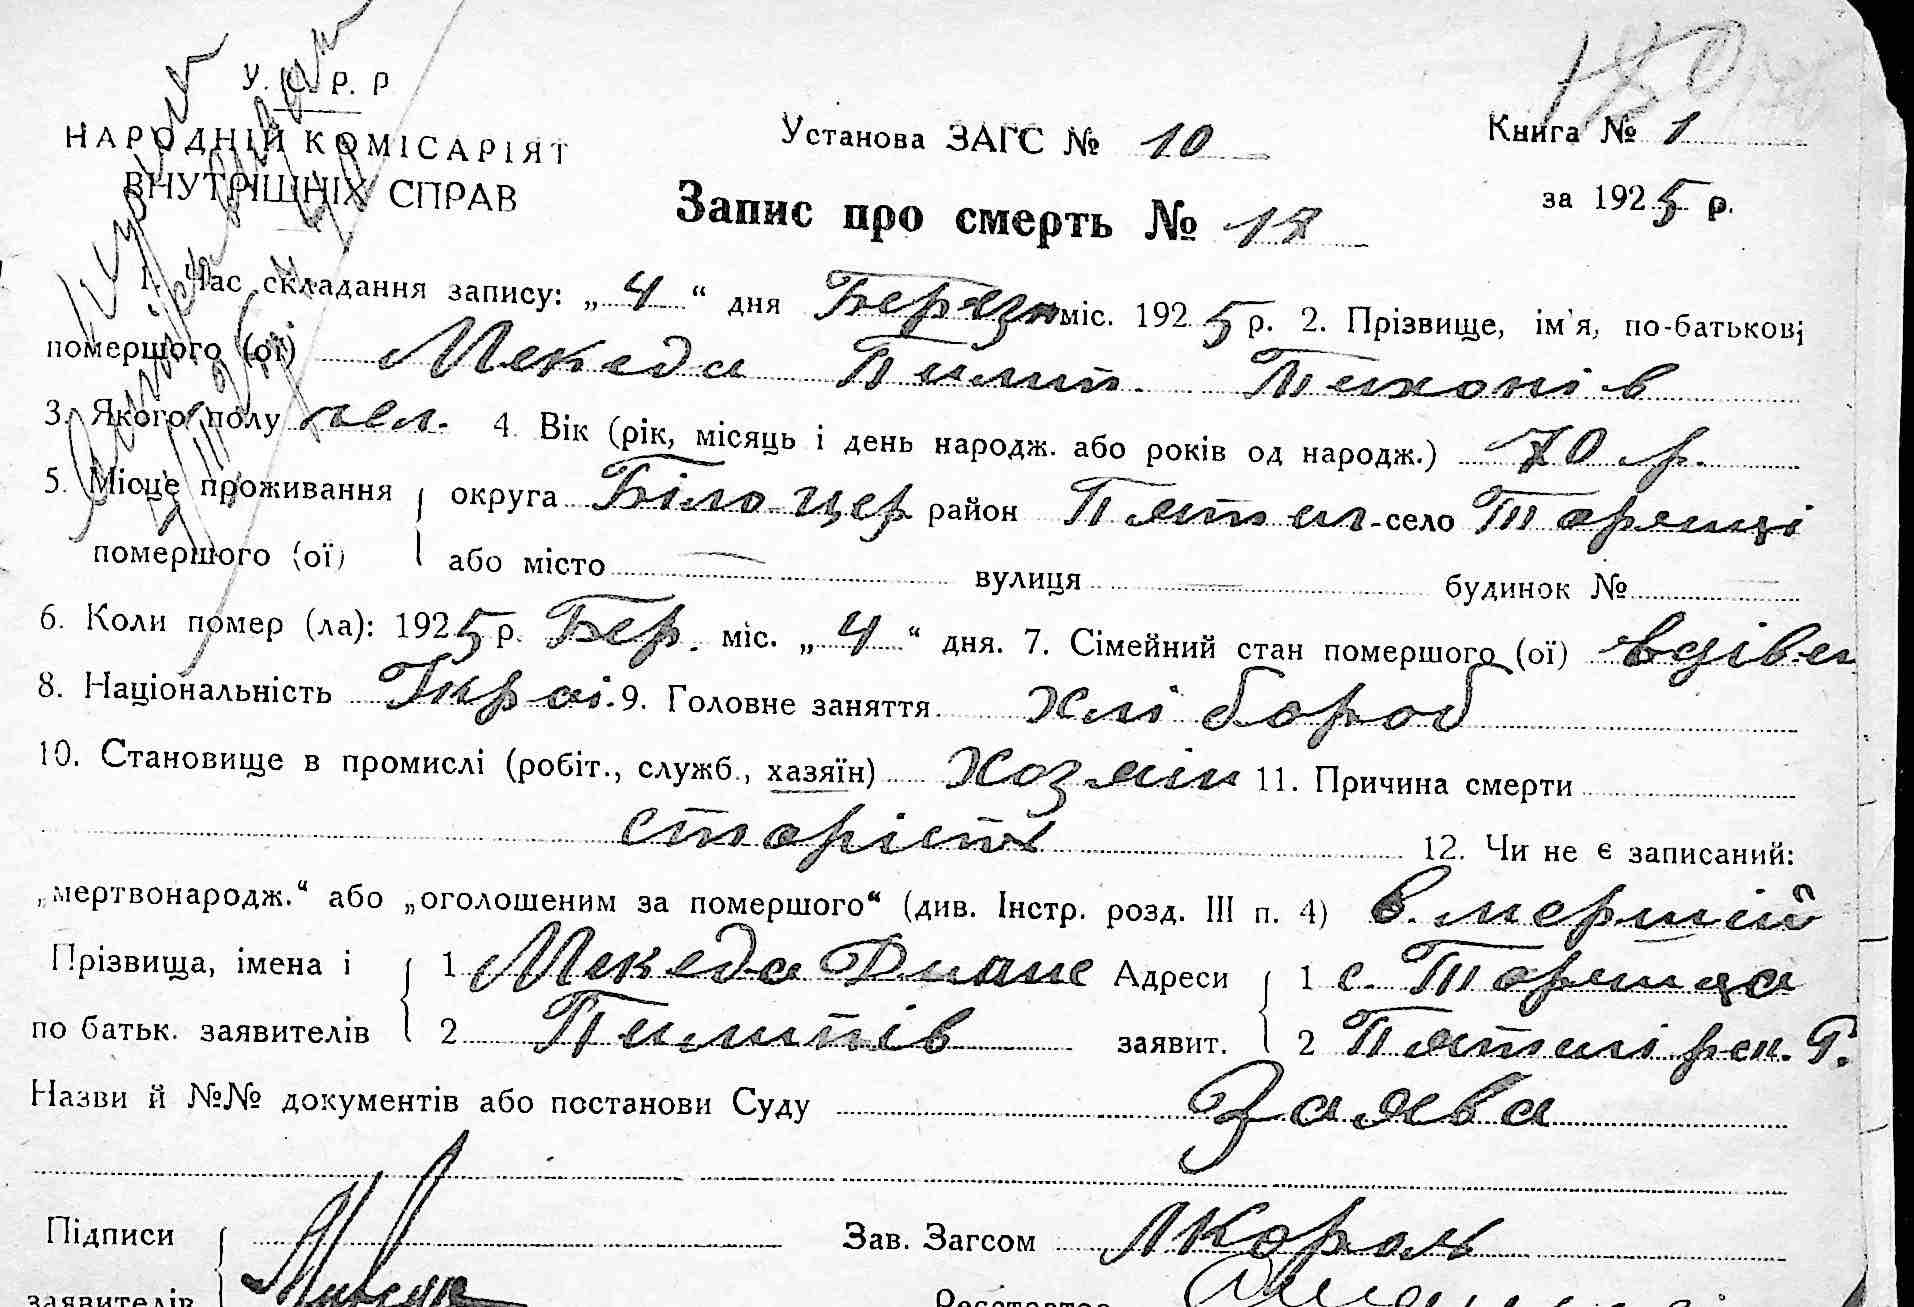 У. С. Р. Р
НАРОДНІЙ КОМІСАРІЯТ
ВНУТРІШНІХ СПРАВ
Установа ЗАГС № 10
Книга № 1
за 1925 р.
Запис про смерть № 18
1. Час складання запису: „4“ дня Березн міс. 1925 р. 2. Прізвище, ім'я, по-батькові
помершого (ої) Мекеда Пилип Тихонів
3. Якого полу чол. 4. Вік (рік, місяць і день народж. або років од народж.) 70 р.
5. Місце проживання округа Біло-цер район Пятигл-село Торчиці
помершого (ої) або місто вулиця будинок №
6. Коли помер (ла): 1925 р. Бер. міс. „4“ дня. 7. Сімейний стан помершого (ої) вдівец
8. Національність Украї. 9. Головне заняття хлібороб
10. Становище в промислі (робіт., служб., хазяїн) хозяїн 11. Причина смерти
старість
12. Чи не є записаний:
„мертвонародж.“ або „оголошеним за помершого“ (див. Інстр. розд. III п. 4) в. мерший
Прізвища, імена і 1 Мекеда Адреси 1 с.
по батьк. заявителів 2 Пилипів заявит. 2
Назви й №№ документів або постанови Суду Заява
Підписи
Зав. Загсом Король
заявителів